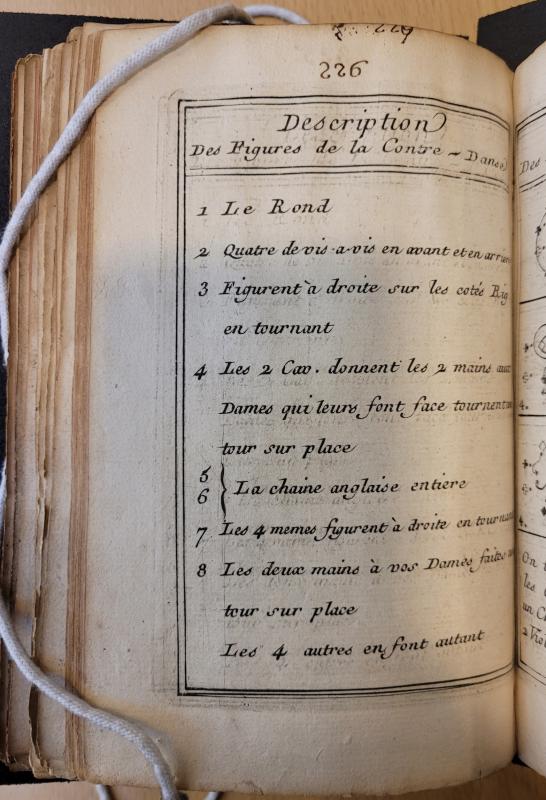 226
Description
Des Figures de la Contre - Danse
1 Le Rond
2 Quatre de vis-a-vis en avant et en arriere
3 Figurent à droite sur les cotés Rig
en tournant
4 Les 2 Cav. donnent les 2 mains aux
Dames qui leurs font face tournent un
tour sur place
5
6 } La chaine anglaise entiere
7 Les 4 memes figurent à droite en tournant
8 Les deux mains à vos Dames faites un
tour sur place
Les 4 autres en font autant
Des
4.
4.
On
les
un C
2 Viol